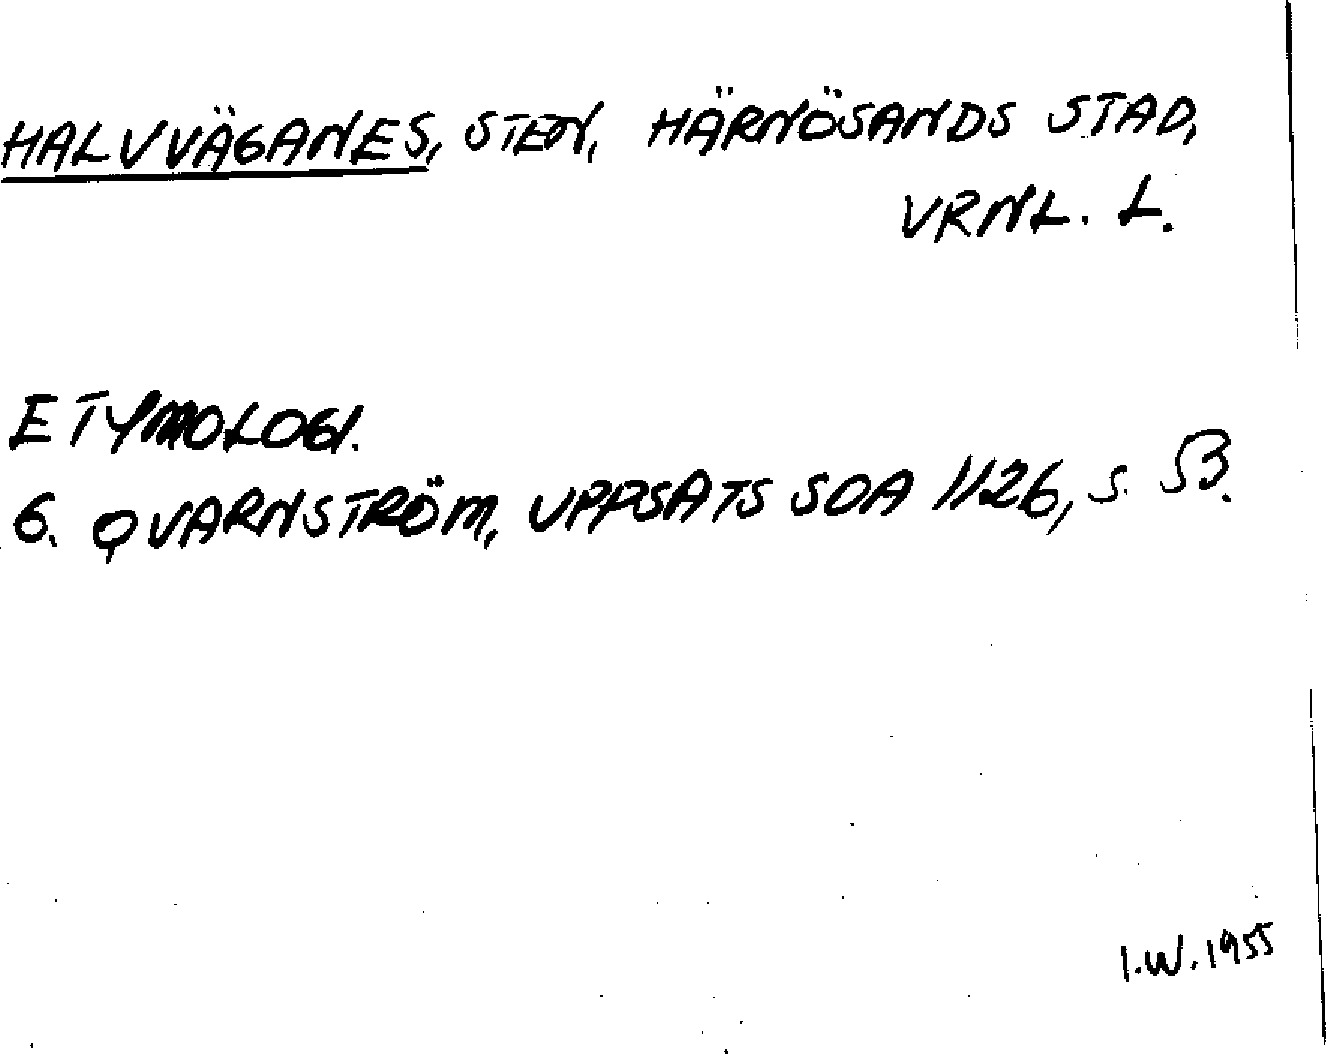 HALVVÄGANES, STEN, HÄRNÖSANDS STAD,
VRNL. L.
ETYMOLOGI.
G. QVARNSTRÖM, UPPSATS SOA 1126, S. 53.
I.W. 1955